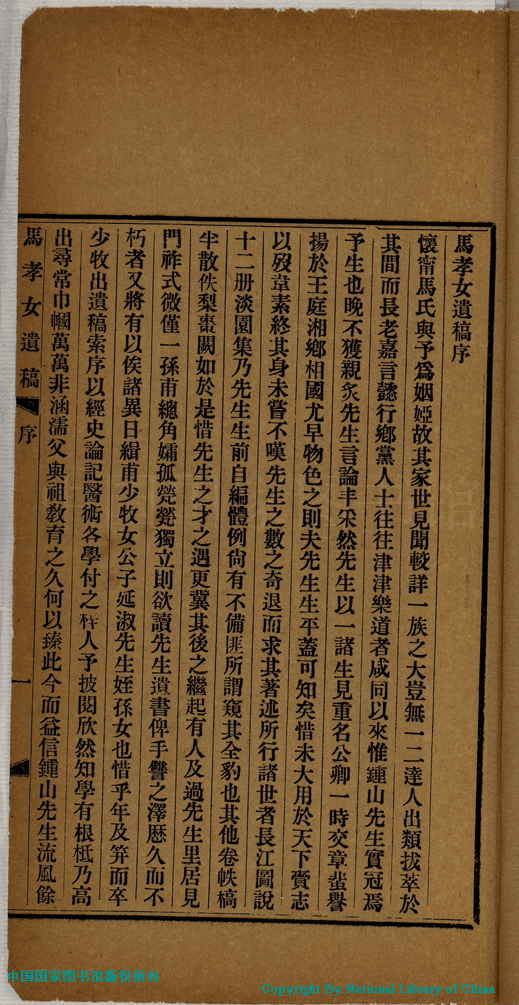 馬孝女遺稿序
懷甯馬氏與予爲姻婭故其家世見聞較詳一族之大豈無一二達人出類拔萃於
其間而長老嘉言懿行鄉黨人士往往津津樂道者咸同以來惟鍾山先生實冠焉
予生也晚不獲親炙先生言論丰采然先生以一諸生見重名公卿一時交章蜚譽
揚於王庭湘鄉相國尤早物色之則夫先生生平蓋可知矣惜未大用於天下賫志
以歿韋素終其身未嘗不嘆先生之數之奇退而求其著述所行諸世者長江圖說
十二册淡園集乃先生生前自編體例尙有不備匪所謂窺其全豹也其他卷帙稿
半散佚梨棗闕如於是惜先生之才之遇更冀其後之繼起有人及過先生里居見
門祚式微僅一孫甫總角孀孤煢煢獨立則欲讀先生遺書俾手讐之澤歷久而不
朽者又將有以俟諸異日緝甫少牧女公子延淑先生姪孫女也惜乎年及笄而卒
少牧出遺稿索序以經史論記醫術各學付之梓人予披閱欣然知學有根柢乃高
出尋常巾幗萬萬非涵濡父與祖敎育之久何以臻此今而益信鍾山先生流風餘
馬孝女遺稿
序
一
中国国家图书馆版权所有
Copyright By National Library of China